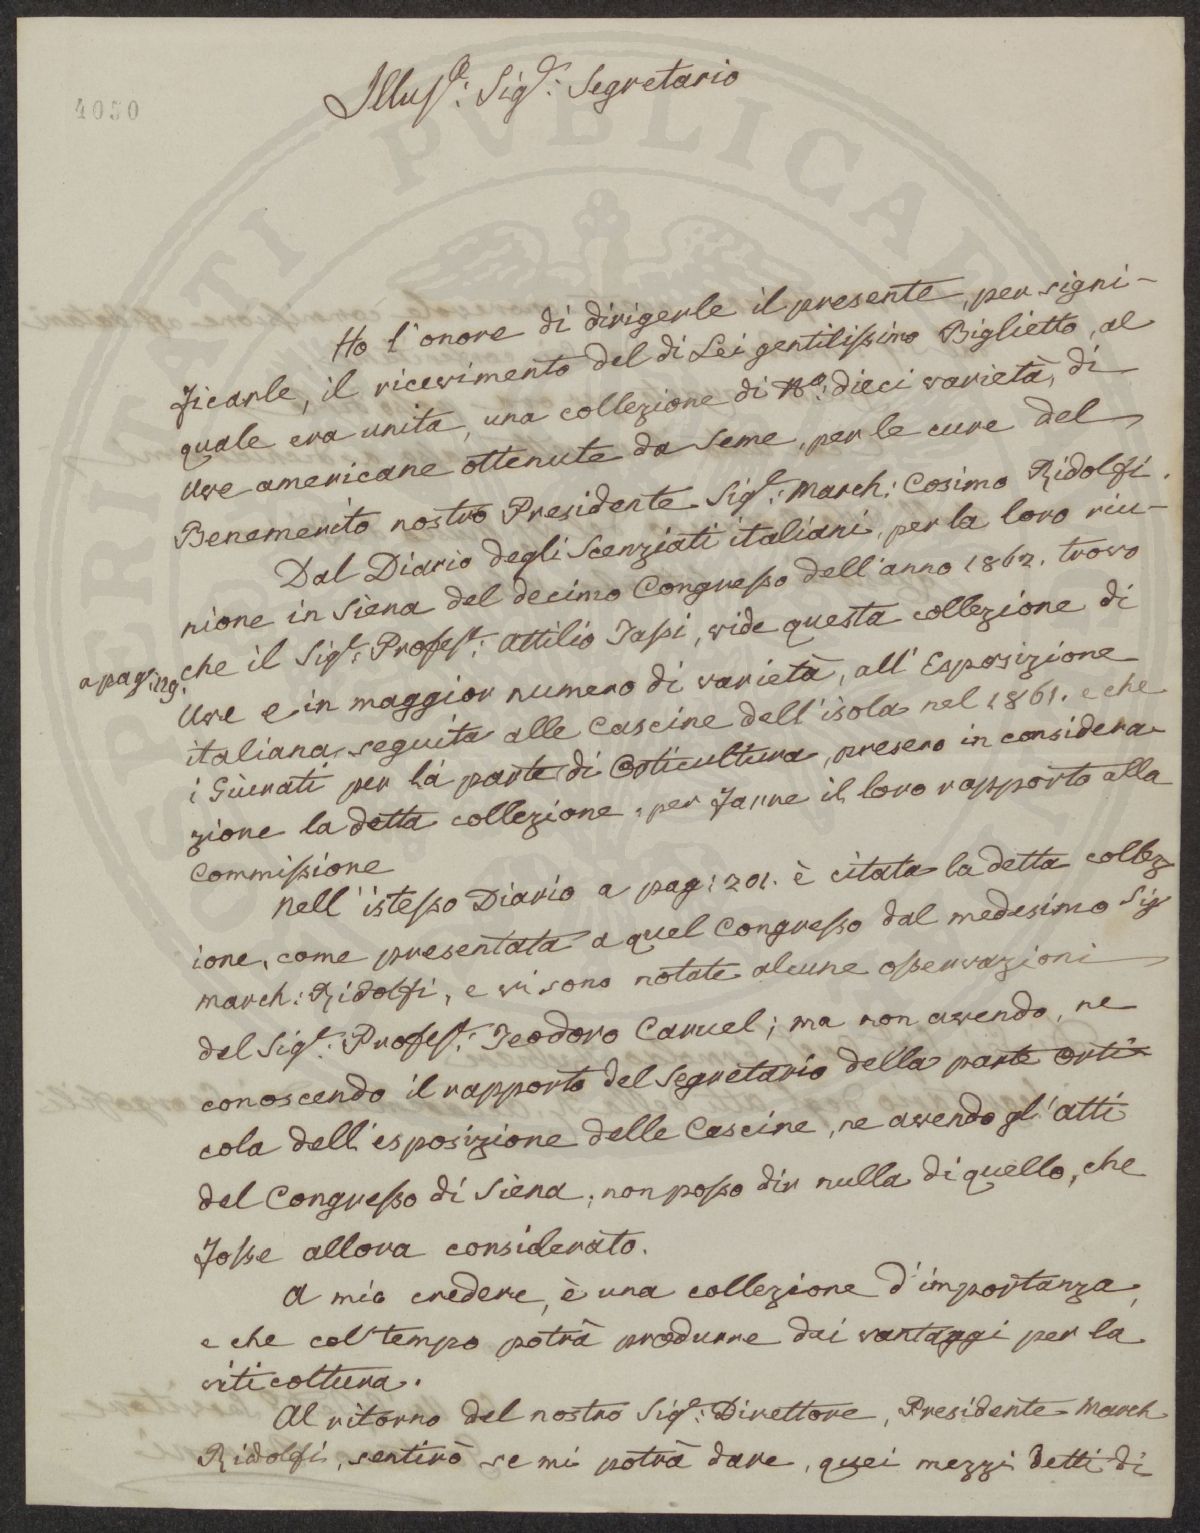 4050
Illus.e: Sig.e: Segretario
Ho l'onore di dirigerle il presente, per signi-
ficarle, il ricevimento del di Lei gentilissimo Biglietto, al
quale era unita, una collezione di N.o: dieci varietà, di
Uve americane ottenute da Seme, per le cure del
Benemerito nostro Presidente Sig.e: March: Cosimo Ridolfi.
Dal Diario degli Scenziati italiani, per la loro riu-
nione in Siena del decimo Congresso dell'anno 1862. trovo
a pag: 129. che il Sig.e: Profes.e: Attilio Tassi, vide questa collezione di
Uve e in maggior numero di varietà, all'Esposizione
italiana seguita alle Cascine dell'isola nel 1861. e che
i Giurati per la parte di Orticultura, presero in considera-
zione la detta collezione, per farne il loro rapporto alla
Commissione
Nell'istesso Diario a pag: 201. è citata la detta collez
ione, come presentata a quel Congresso dal medesimo Sig
March: Ridolfi, e vi sono notate alcune osservazioni
del Sig.e: Profes.e: Teodoro Caruel; ma non avendo, ne
conoscendo il rapporto del Segretario della parte orti-
cola dell'esposizione delle Cascine, ne avendo gl'atti
del Congresso di Siena, non posso dir nulla di quello, che
fosse allora considerato.
A mio credere, è una collezione d'importanza,
e che col tempo potrà produrre dei vantaggi per la
viticoltura.
Al ritorno del nostro Sig.e: Direttore, Presidente March
Ridolfi, sentirò se mi potrà dare, quei mezzi detti di
PRIVATI PVBLICAE